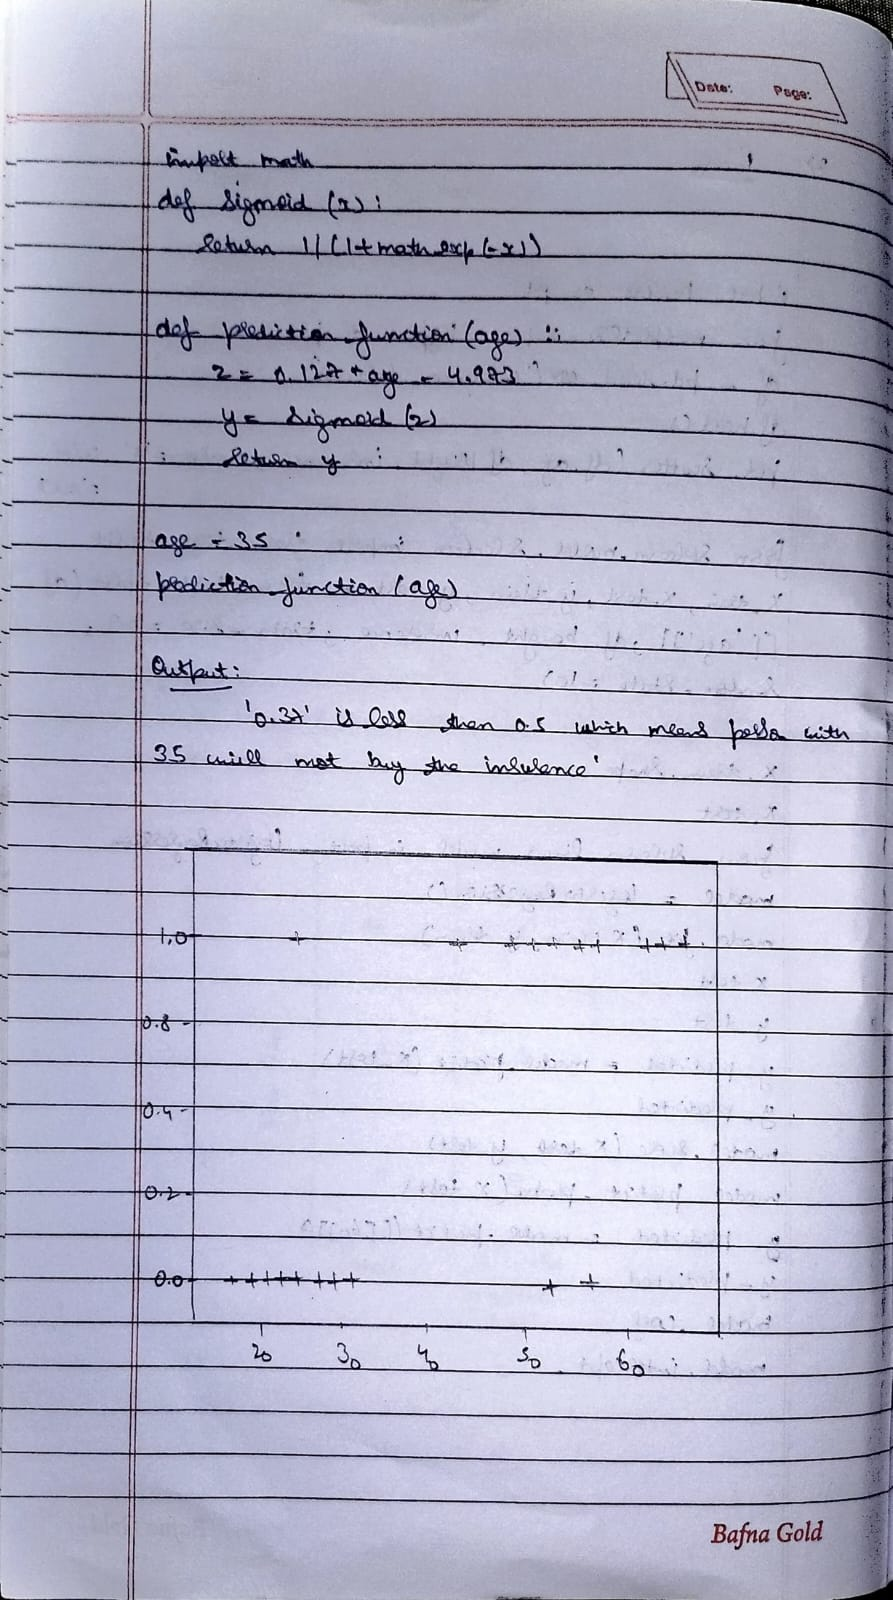 Date: Page:
import math
def sigmoid (x):
return 1/(1+math.exp(-x))
def prediction_function (age):
z = 0.127 * age - 4.973
y = sigmoid (z)
return y
age = 35
prediction_function (age)
Output:
'0.37' is less then 0.5 which means person with
35 will not buy the insurence'
1.0
0.8
0.4
0.2
0.0
20 30 40 50 60
Bafna Gold